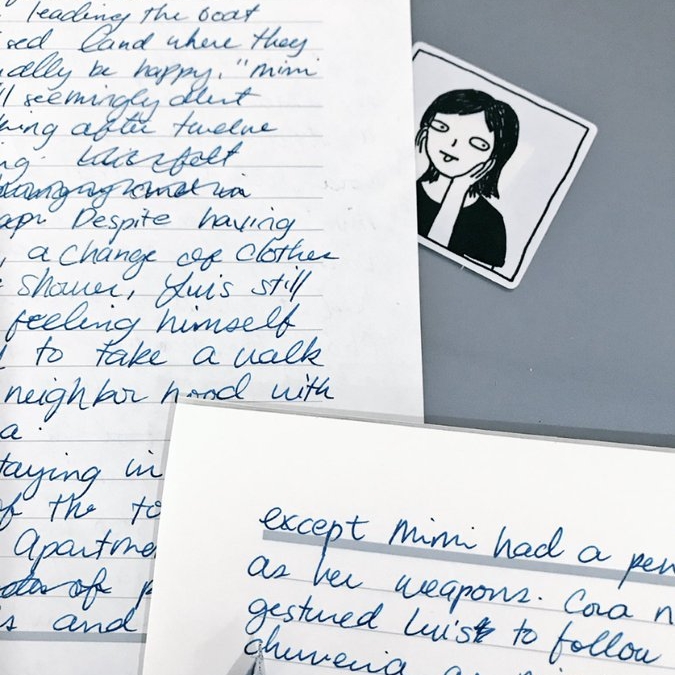 leading the boat
sed land where they
ually be happy." mimi
ll seemingly alert
hing after twelve
ng. felt
Despite having
, a change of clothes
shower, Luis still
feeling himself
to take a walk
neighbor hood with
a.
taying in
of the to
Apartme
of p
s and
except mimi had a pen
as her weapons. Cora n
gestured Luis to follow